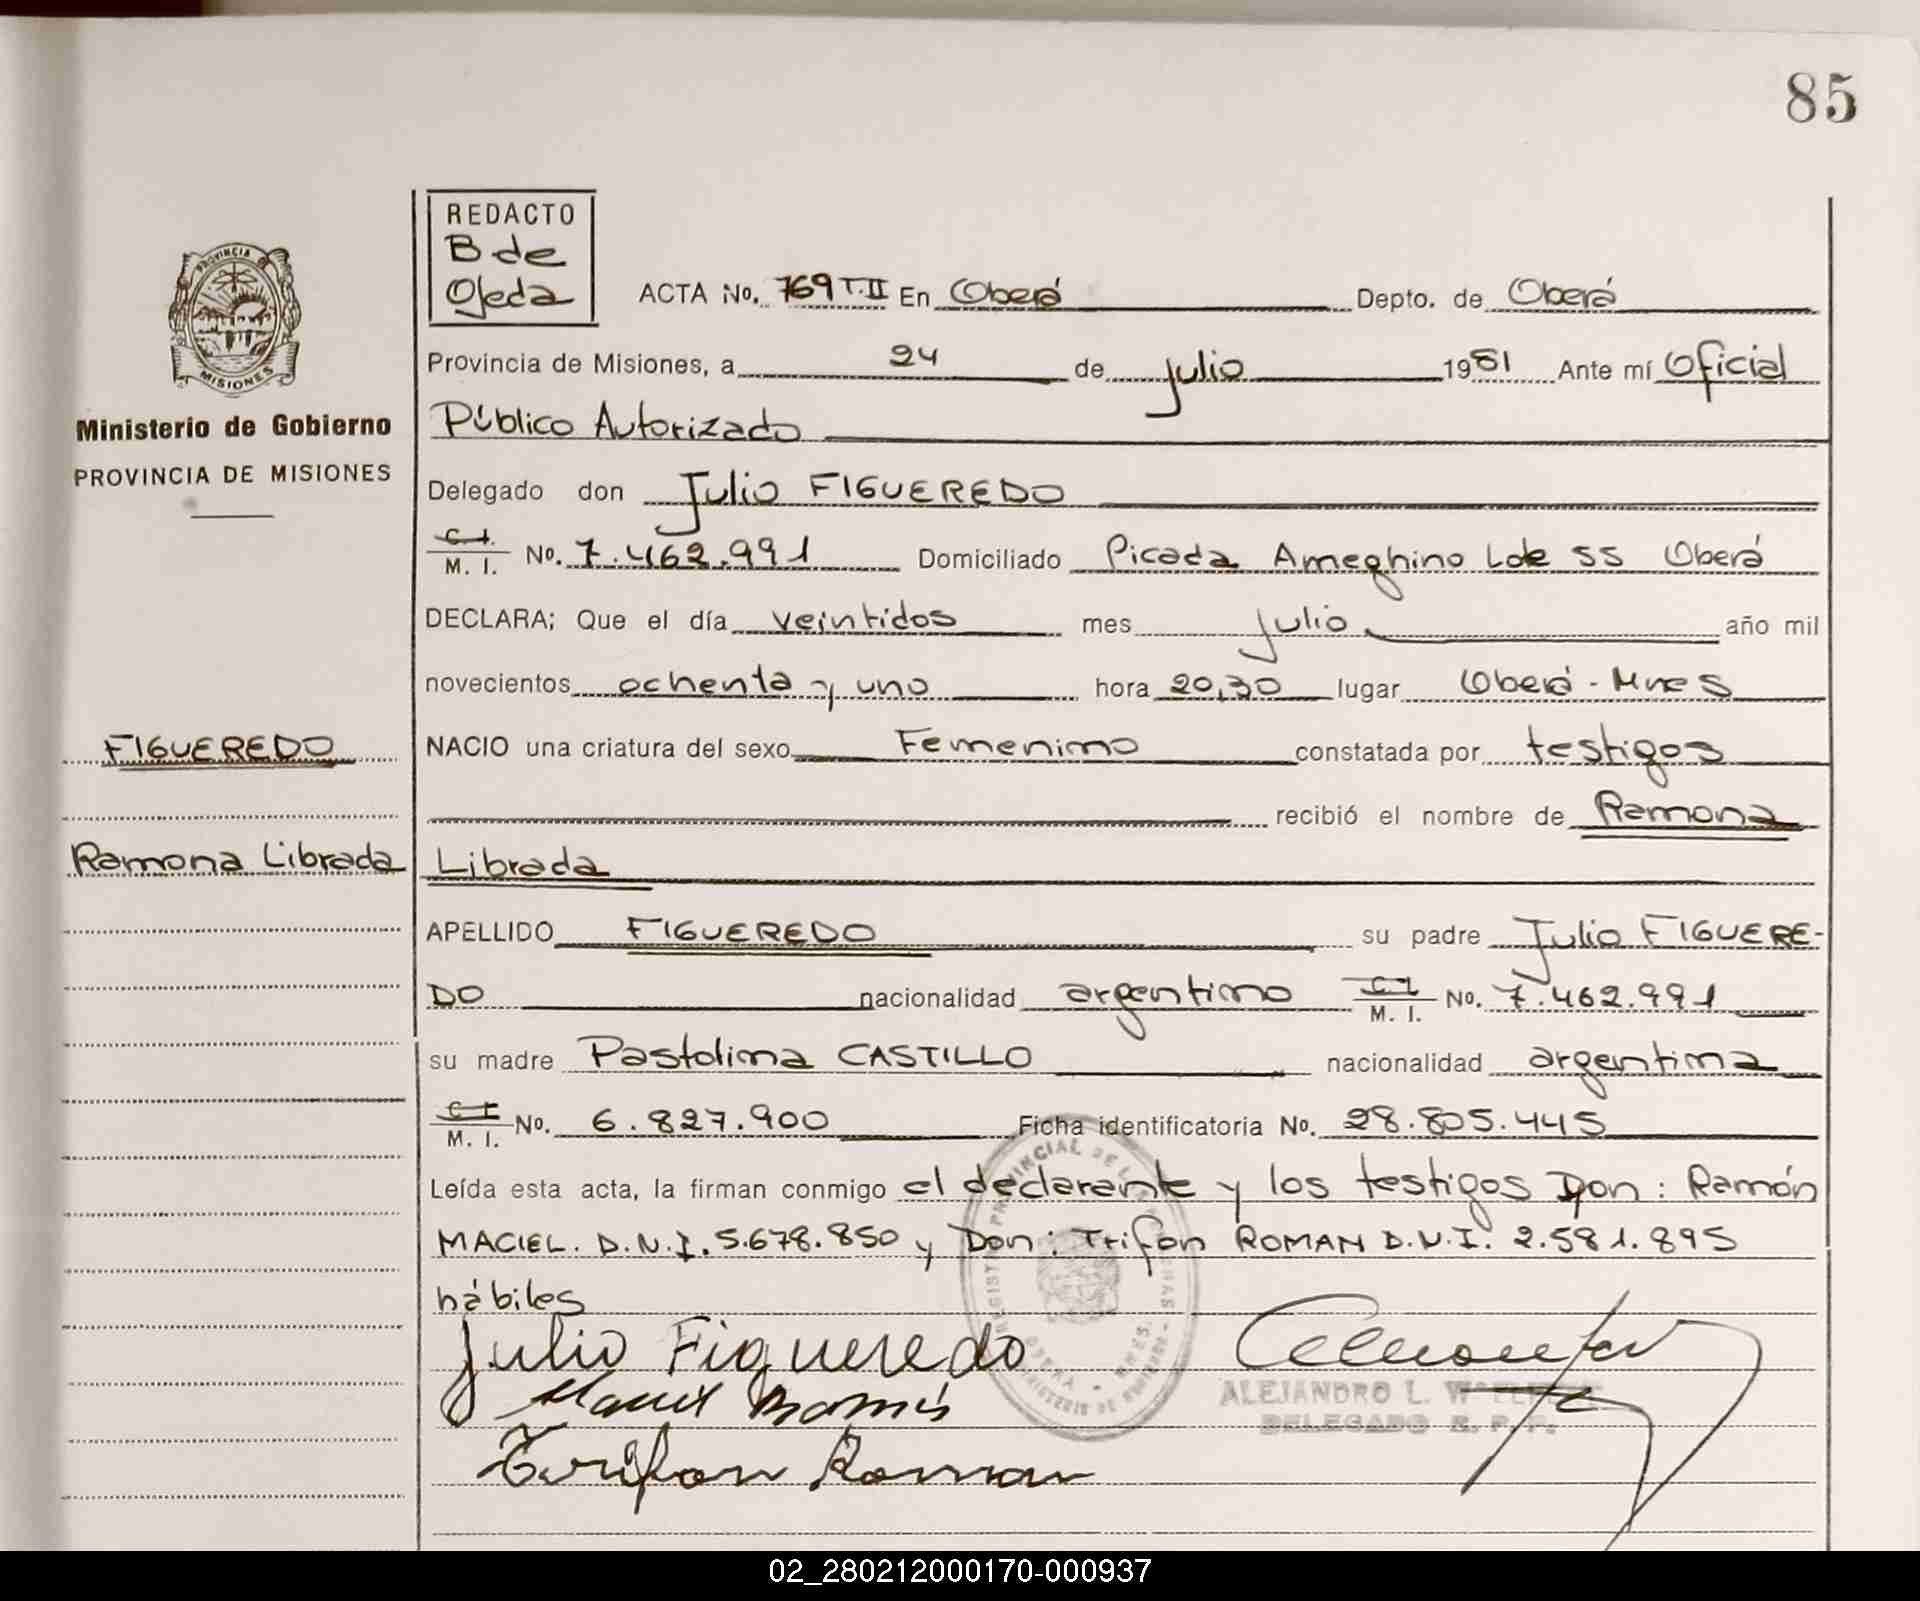 85
REDACTO
B de
Ojeda
ACTA No. 769 T.II En Oberá Depto. de Oberá
PROVINCIA
MISIONES
Provincia de Misiones, a 24 de julio 1981 Ante mí Oficial
Ministerio de Gobierno
Público Autorizado
PROVINCIA DE MISIONES
Delegado don Julio FIGUEREDO
C. I.
M. I. No. 7.462.991 Domiciliado Picada Ameghino Lote 55 Oberá
DECLARA; Que el día veintidos mes julio año mil
novecientos ochenta y uno hora 20,30 lugar Oberá - Mnes
FIGUEREDO
NACIO una criatura del sexo Femenino constatada por testigos
recibió el nombre de Ramona
Ramona Librada
Librada
APELLIDO FIGUEREDO su padre Julio FIGUERE-
DO nacionalidad argentino C. I. M. I. No. 7.462.991
su madre Pastolina CASTILLO nacionalidad argentina
C. I.
M. I. No. 6.827.900 Ficha identificatoria No. 28.805.445
Leída esta acta, la firman conmigo el declarante y los testigos Don: Ramón
MACIEL. D.N.I. 5.678.850 y Don: Trifon ROMAN D.N.I. 2.581.895
hábiles
Julio Figueredo
Maciel Ramón
Trifon Roman
ALEJANDRO L.
DELEGADO R. P. P.
REGISTRO PROVINCIAL DE LAS PERSONAS
OBERA - MNES.
02_280212000170-000937